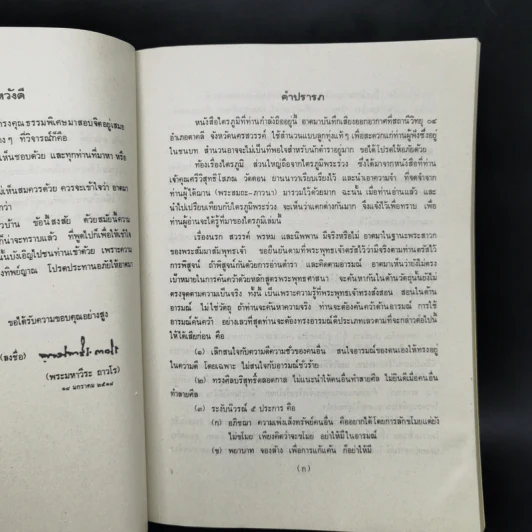 หวังดี
ทรงคุณธรรมพิเศษมาสอบจิตอยู่เสมอ
ต่างๆ ที่วิจารณ์ก็คือ
เห็นชอบด้วย และทุกท่านที่มาหา หรือ
ไม่เห็นสมควรด้วย ควรจะเข้าใจว่า อาตมา
ขอได้รับความขอบคุณอย่างสูง
(ลงชื่อ)
(พระมหาวีระ ถาวโร)
๑๘ มกราคม ๒๕๑๘
คำปรารภ
หนังสือไตรภูมิที่ท่านกำลังถืออยู่นี้ อาตมาบันทึกเสียงออกอากาศที่สถานีวิทยุ ๐๔
อำเภอตาคลี จังหวัดนครสวรรค์ ใช้สำนวนแบบลูกทุ่งแท้ๆ เพื่อสะดวกแก่ท่านผู้ฟังซึ่งอยู่
ในชนบท สำนวนอาจจะไม่เป็นที่พอใจสำหรับนักตำราอยู่มาก ขอได้โปรดให้อภัยด้วย
ท้องเรื่องไตรภูมิ ส่วนใหญ่ถือจากไตรภูมิพระร่วง ซึ่งได้มาจากหนังสือที่ท่าน
เจ้าคุณศรีวิสุทธิโสภณ วัดดอน ยานนาวาเรียบเรียงไว้ และนำเอาความจำ ที่จดจำจาก
ท่านผู้ได้ฌาน (พระสมถะ-ภาวนา) มารวมไว้ด้วยมาก ฉะนั้น เมื่อท่านอ่านแล้ว และ
นำไปเปรียบเทียบกับไตรภูมิพระร่วง จะเห็นว่าแตกต่างกันมาก จึงแจ้งไว้เพื่อทราบ เพื่อ
ท่านผู้อ่านจะได้รู้ที่มาของไตรภูมิเล่มนี้
เรื่องนรก สวรรค์ พรหม และนิพพาน มีจริงหรือไม่ อาตมาในฐานะพระสาวก
ของพระสัมมาสัมพุทธเจ้า ขอยืนยันตามที่พระพุทธเจ้าตรัสไว้ว่ามีจริงตามท่านตรัสไว้
การพิสูจน์ ถ้าพิสูจน์กันด้วยการอ่านตำรา และคิดตามอารมณ์ อาตมาเห็นว่ายังไม่ตรง
เป้าหมายในการค้นคว้าด้วยหลักสูตรพระพุทธศาสนา จะค้นหากันในด้านวัตถุนั้นยังไม่
ตรงจุดตามความเป็นจริง ทั้งนี้ เป็นเพราะความรู้ที่พระพุทธเจ้าทรงสั่งสอน สอนในด้าน
อารมณ์ ไม่ใช่วัตถุ ถ้าท่านจะค้นหาความจริง ท่านจะต้องค้นคว้าด้านอารมณ์ การใช้
อารมณ์ค้นคว้า อย่างเลวที่สุดท่านจะต้องทรงอารมณ์ดีประเภทเลวตามที่จะกล่าวต่อไปนี้
ให้ได้เสียก่อน คือ
(๑) เลิกสนใจกับความดีความชั่วของคนอื่น สนใจอารมณ์ของตนเองให้ทรงอยู่
ในความดี โดยเฉพาะ ไม่สนใจกับอารมณ์ชั่วร้าย
(๒) ทรงศีลบริสุทธิ์ตลอดกาล ไม่แนะนำให้คนอื่นทำลายศีล ไม่ยินดีเมื่อคนอื่น
ทำลายศีล
(๓) ระงับนิวรณ์ ๕ ประการ คือ
(ก) อภิชฌา ความเพ่งเล็งทรัพย์คนอื่น คืออยากได้โดยการลักขโมยแต่ยัง
ไม่ขโมย เพียงคิดว่าจะขโมย อย่าให้มีในอารมณ์
(ข) พยาบาท จองล้าง เพื่อการแก้แค้น ก็อย่าให้มี
(ก)